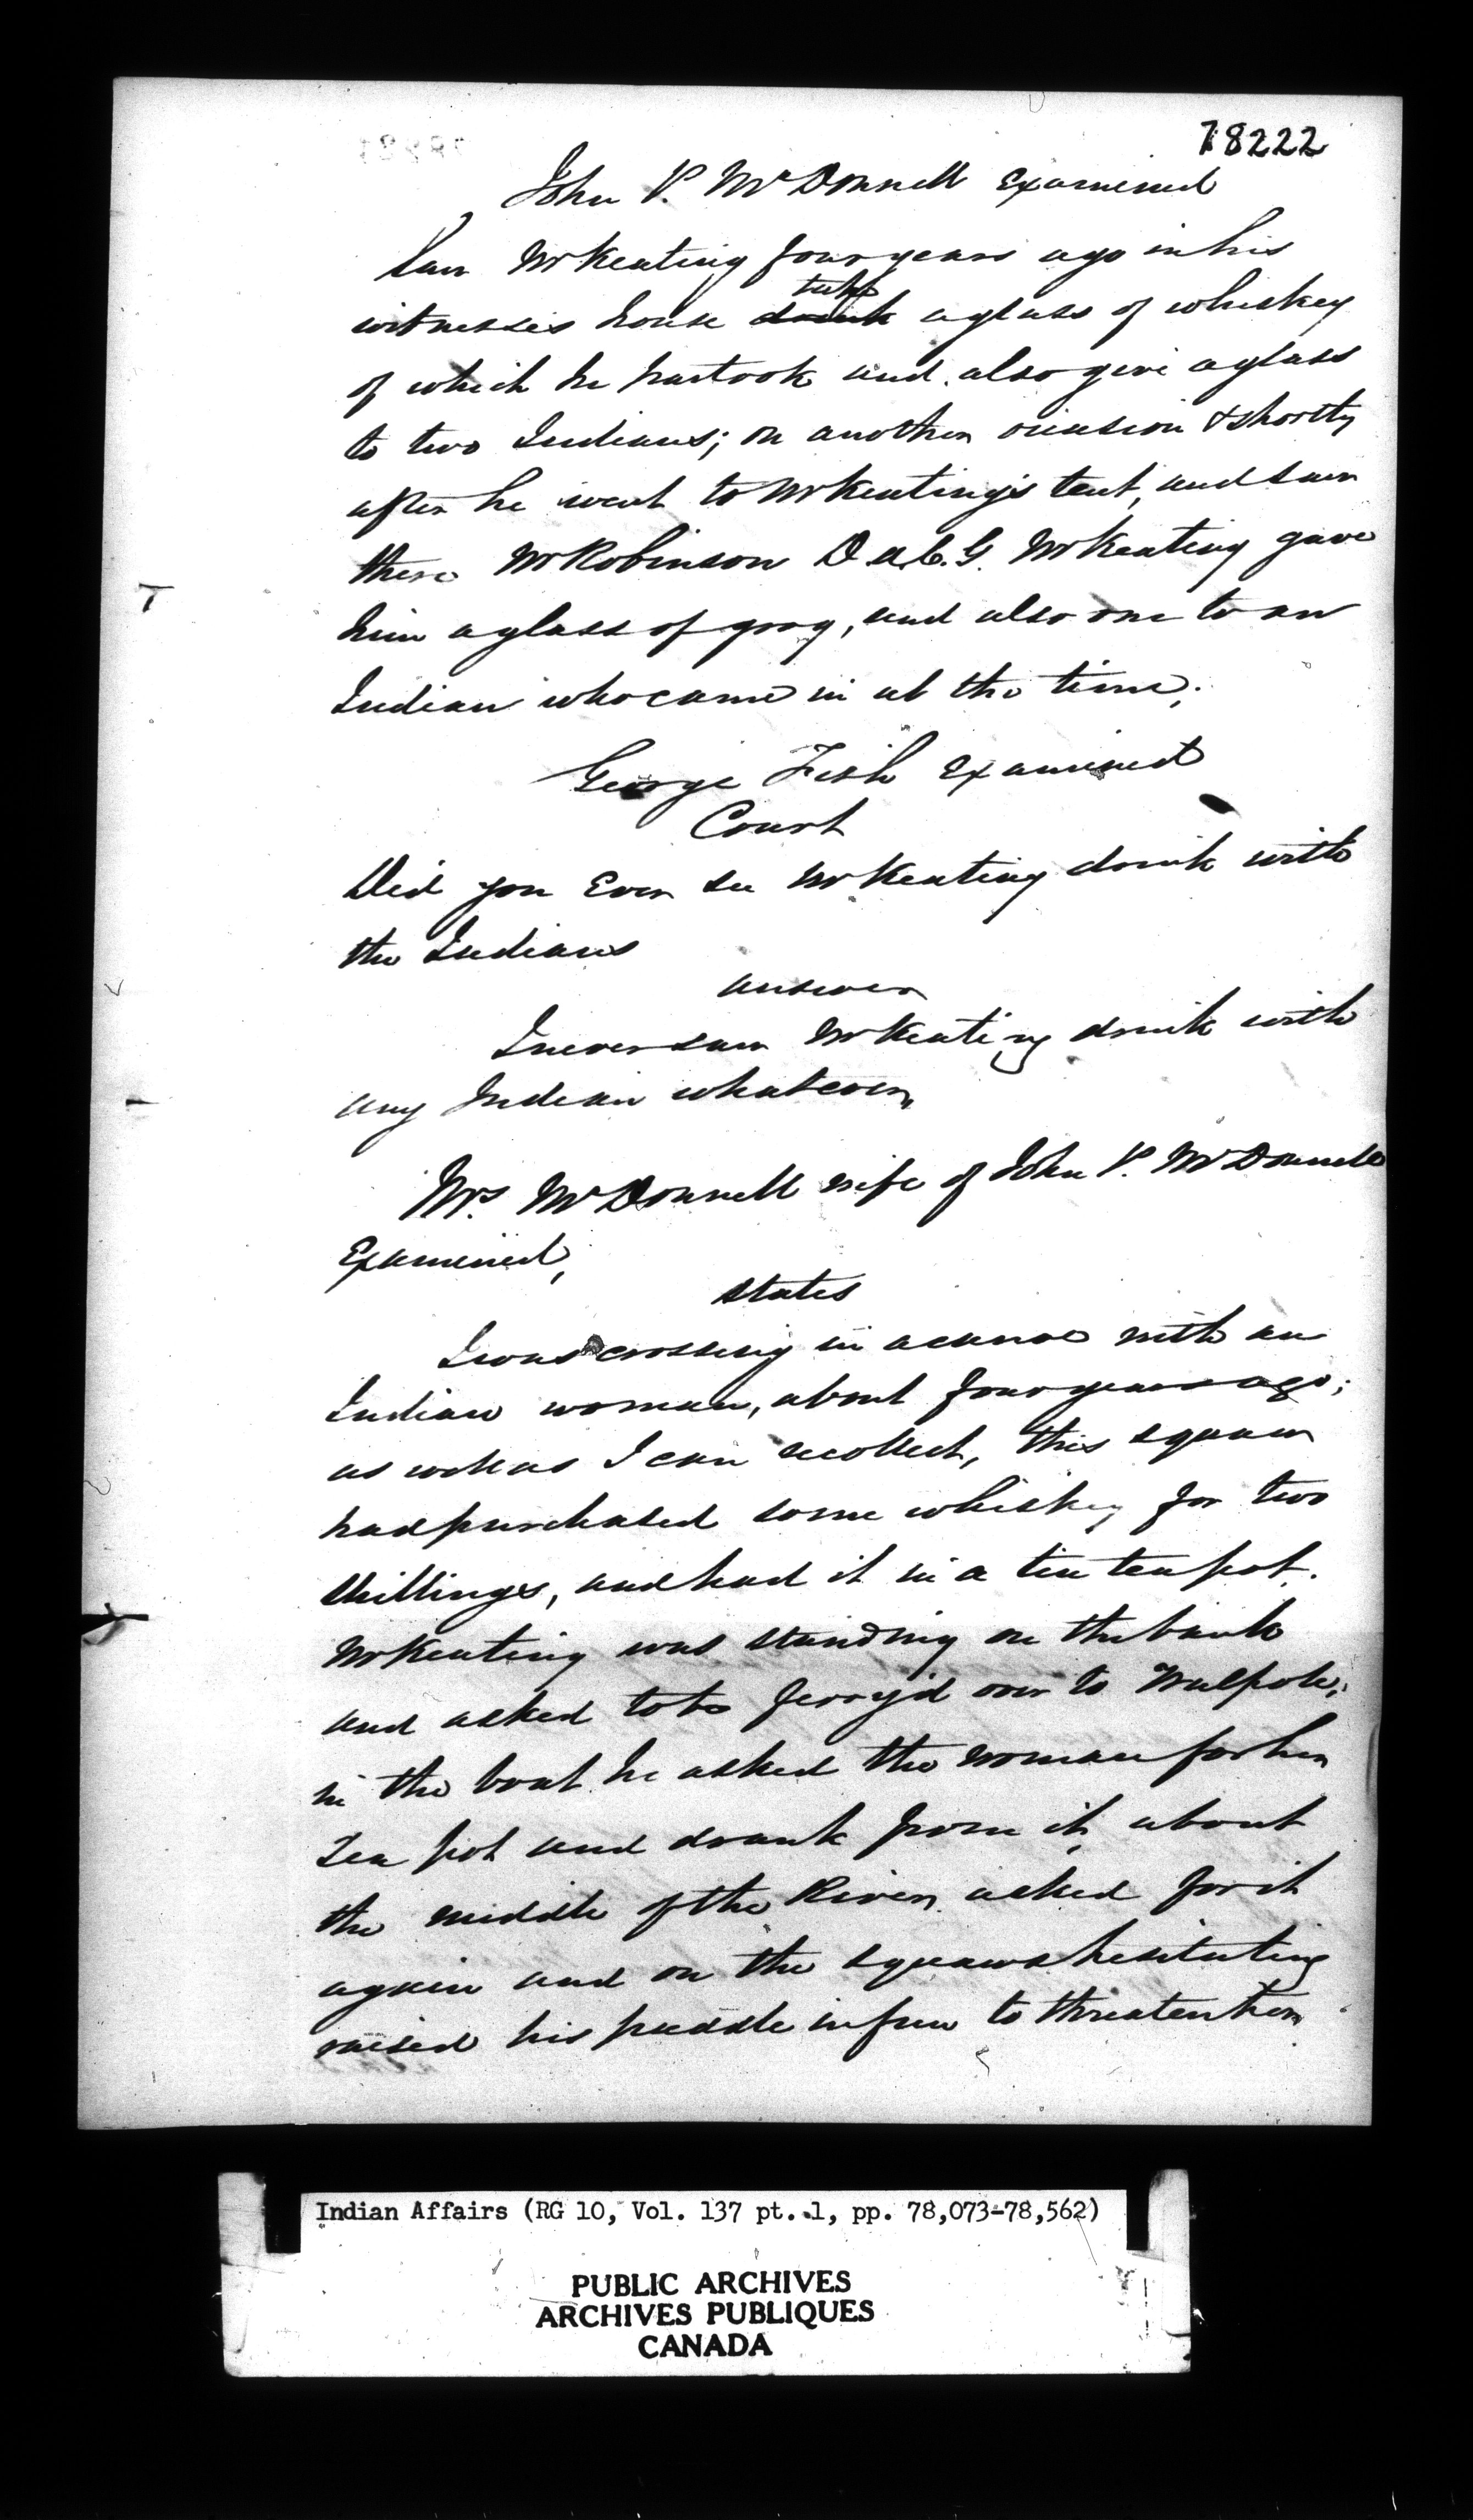 78222
John P. McDonnell Examined
Saw Mr Keating four years ago in his
take
witnesses house drink a glass of whiskey
of which he partook and also give a glass
to two Indians; on another occasion & shortly
after he went to Mr Keating's tent, and saw
there Mr Robinson D.A.C.G. Mr Keating gave
him a glass of grog, and also one to an
Indian who came in at the time.
George Fish Examined
Court
Did you Ever see Mr Keating drink with
the Indians
answer
I never saw Mr Keating drink with
any Indian whatever,
Mrs. McDonnell wife of John P. McDonnell
Examined,
states
I was crossing in a canoe with an
Indian woman, about four years ago;
as well as I can recollect, this squaw
had purchased some whiskey for two
shillings, and had it in a tin tea pot.
Mr Keating was standing on the bank
and asked to be ferry'd over to Walpole;
in the boat he asked the woman for her
Tea pot and drank from it, about
the middle of the River asked for it
again and on the squaws hesitating
raised his paddle in fun to threaten her
Indian Affairs (RG 10, Vol. 137 pt. 1, pp. 78,073-78,562)
PUBLIC ARCHIVES
ARCHIVES PUBLIQUES
CANADA